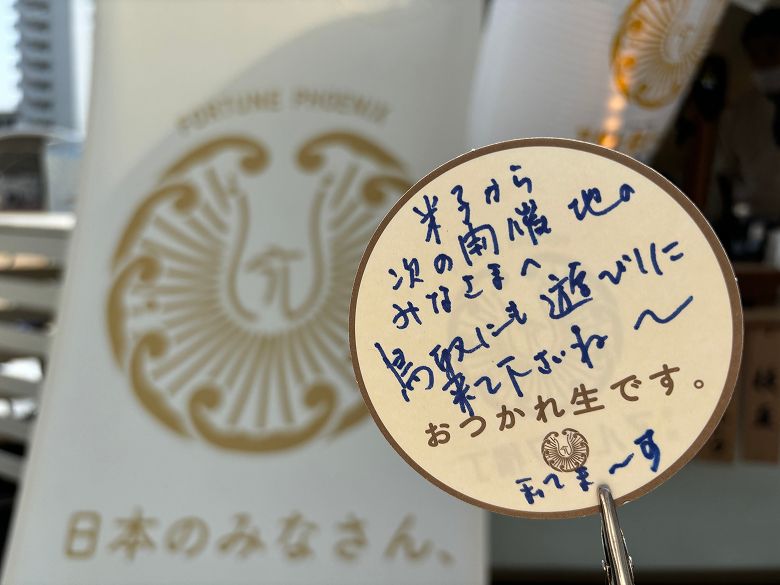 FORTUNE PHOENIX
日本のみなさん、
米子から
次の開催地の
みなさまへ
鳥取にも遊びに
来て下さいね〜
おつかれ生です。
まってま〜す